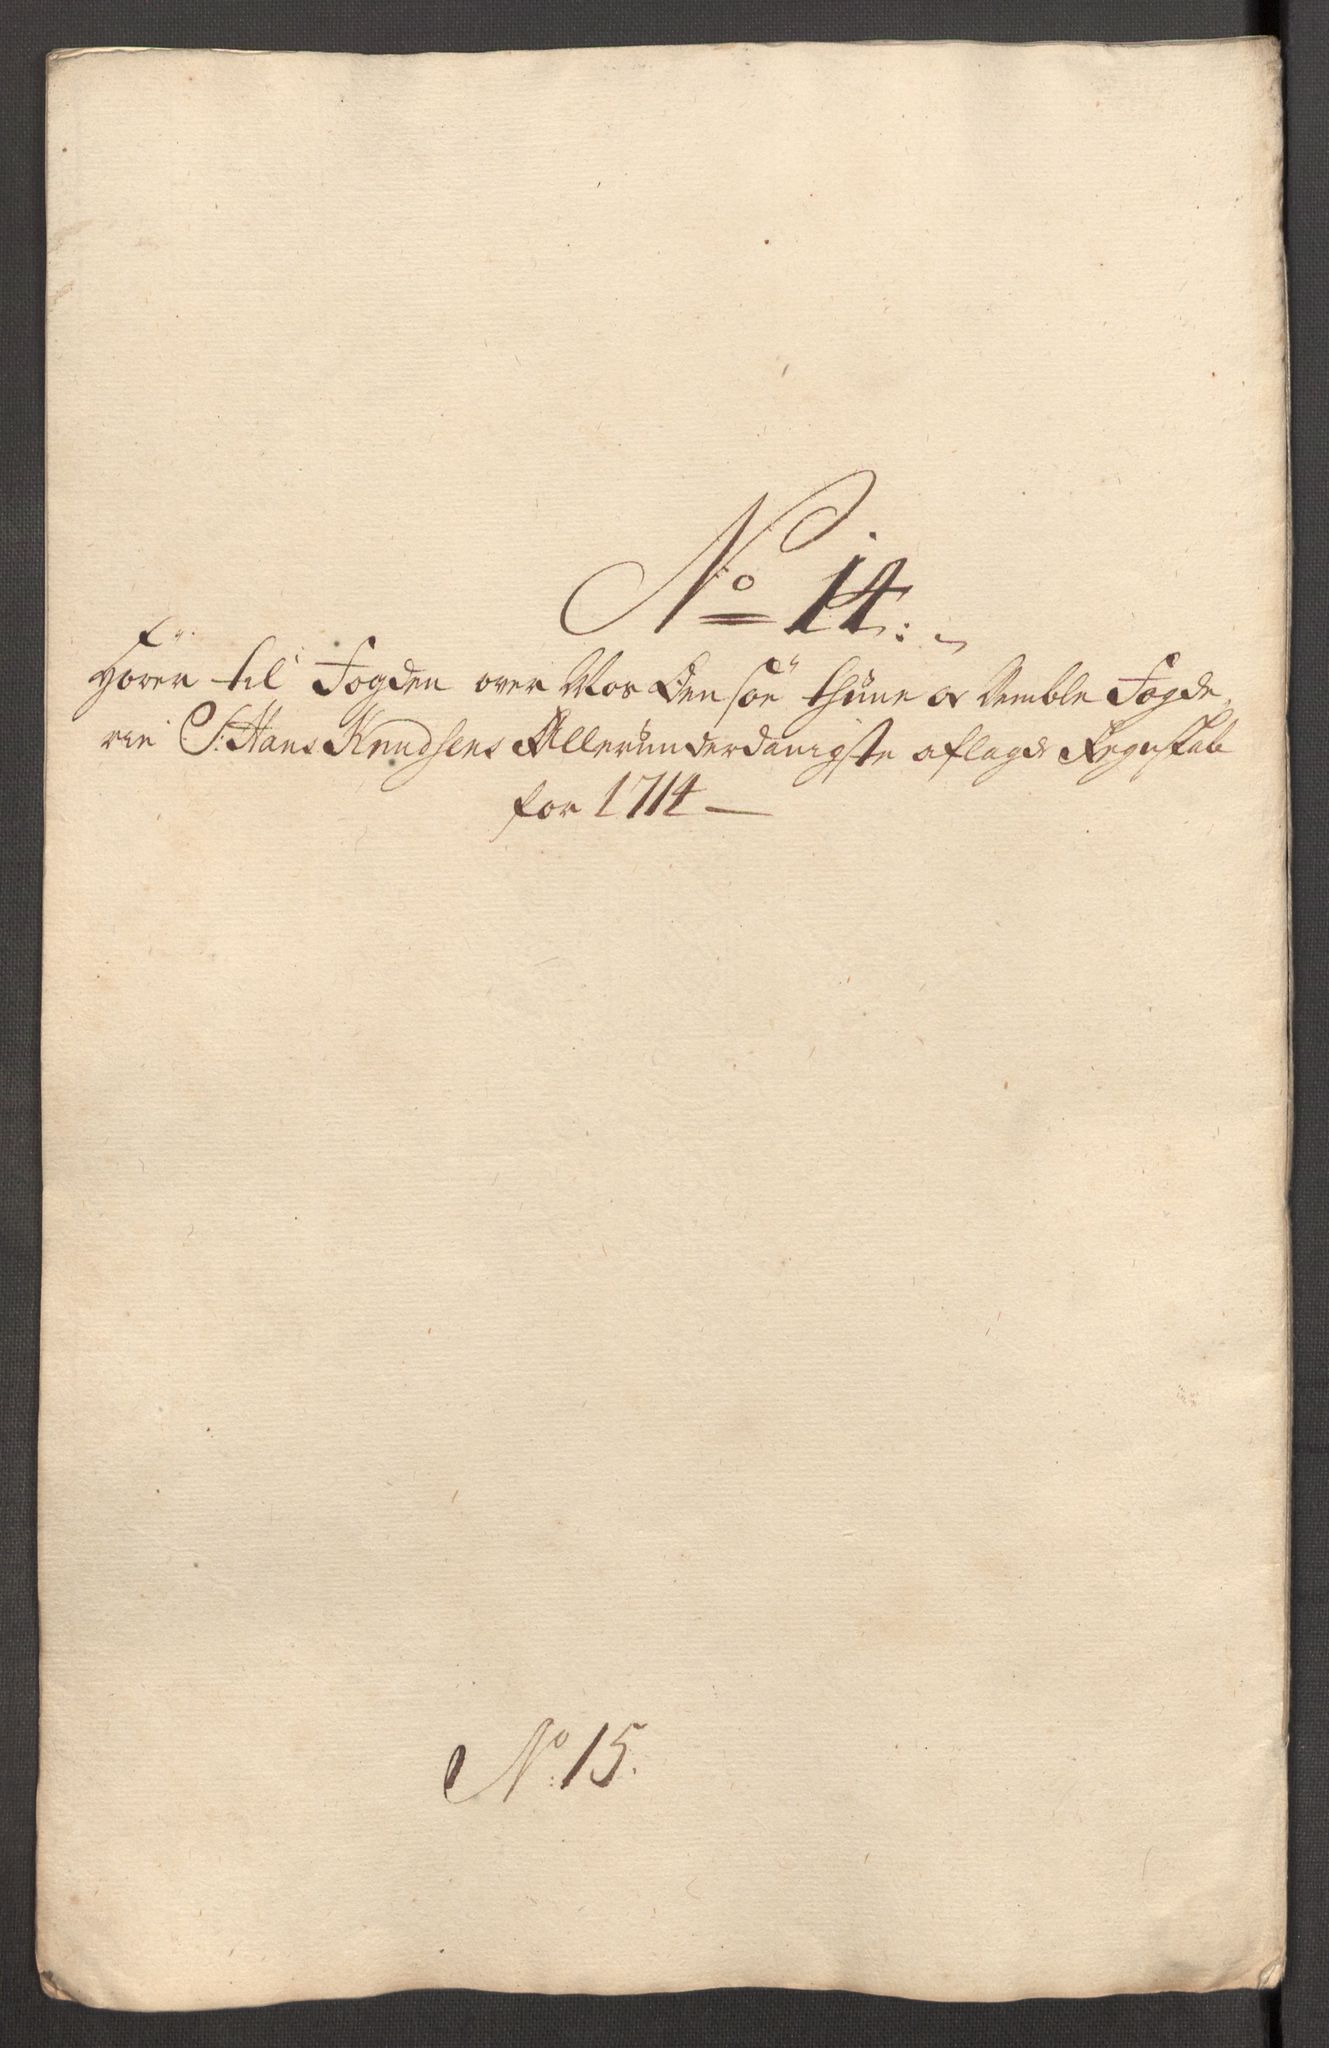 No 14:
Hører til Fogden over Moss Ons søe thune og Wemble Fogde
rie Sr: Hans Knudsens Allerunderdanigste aflagde Regnskab
for 1714
No: 15.